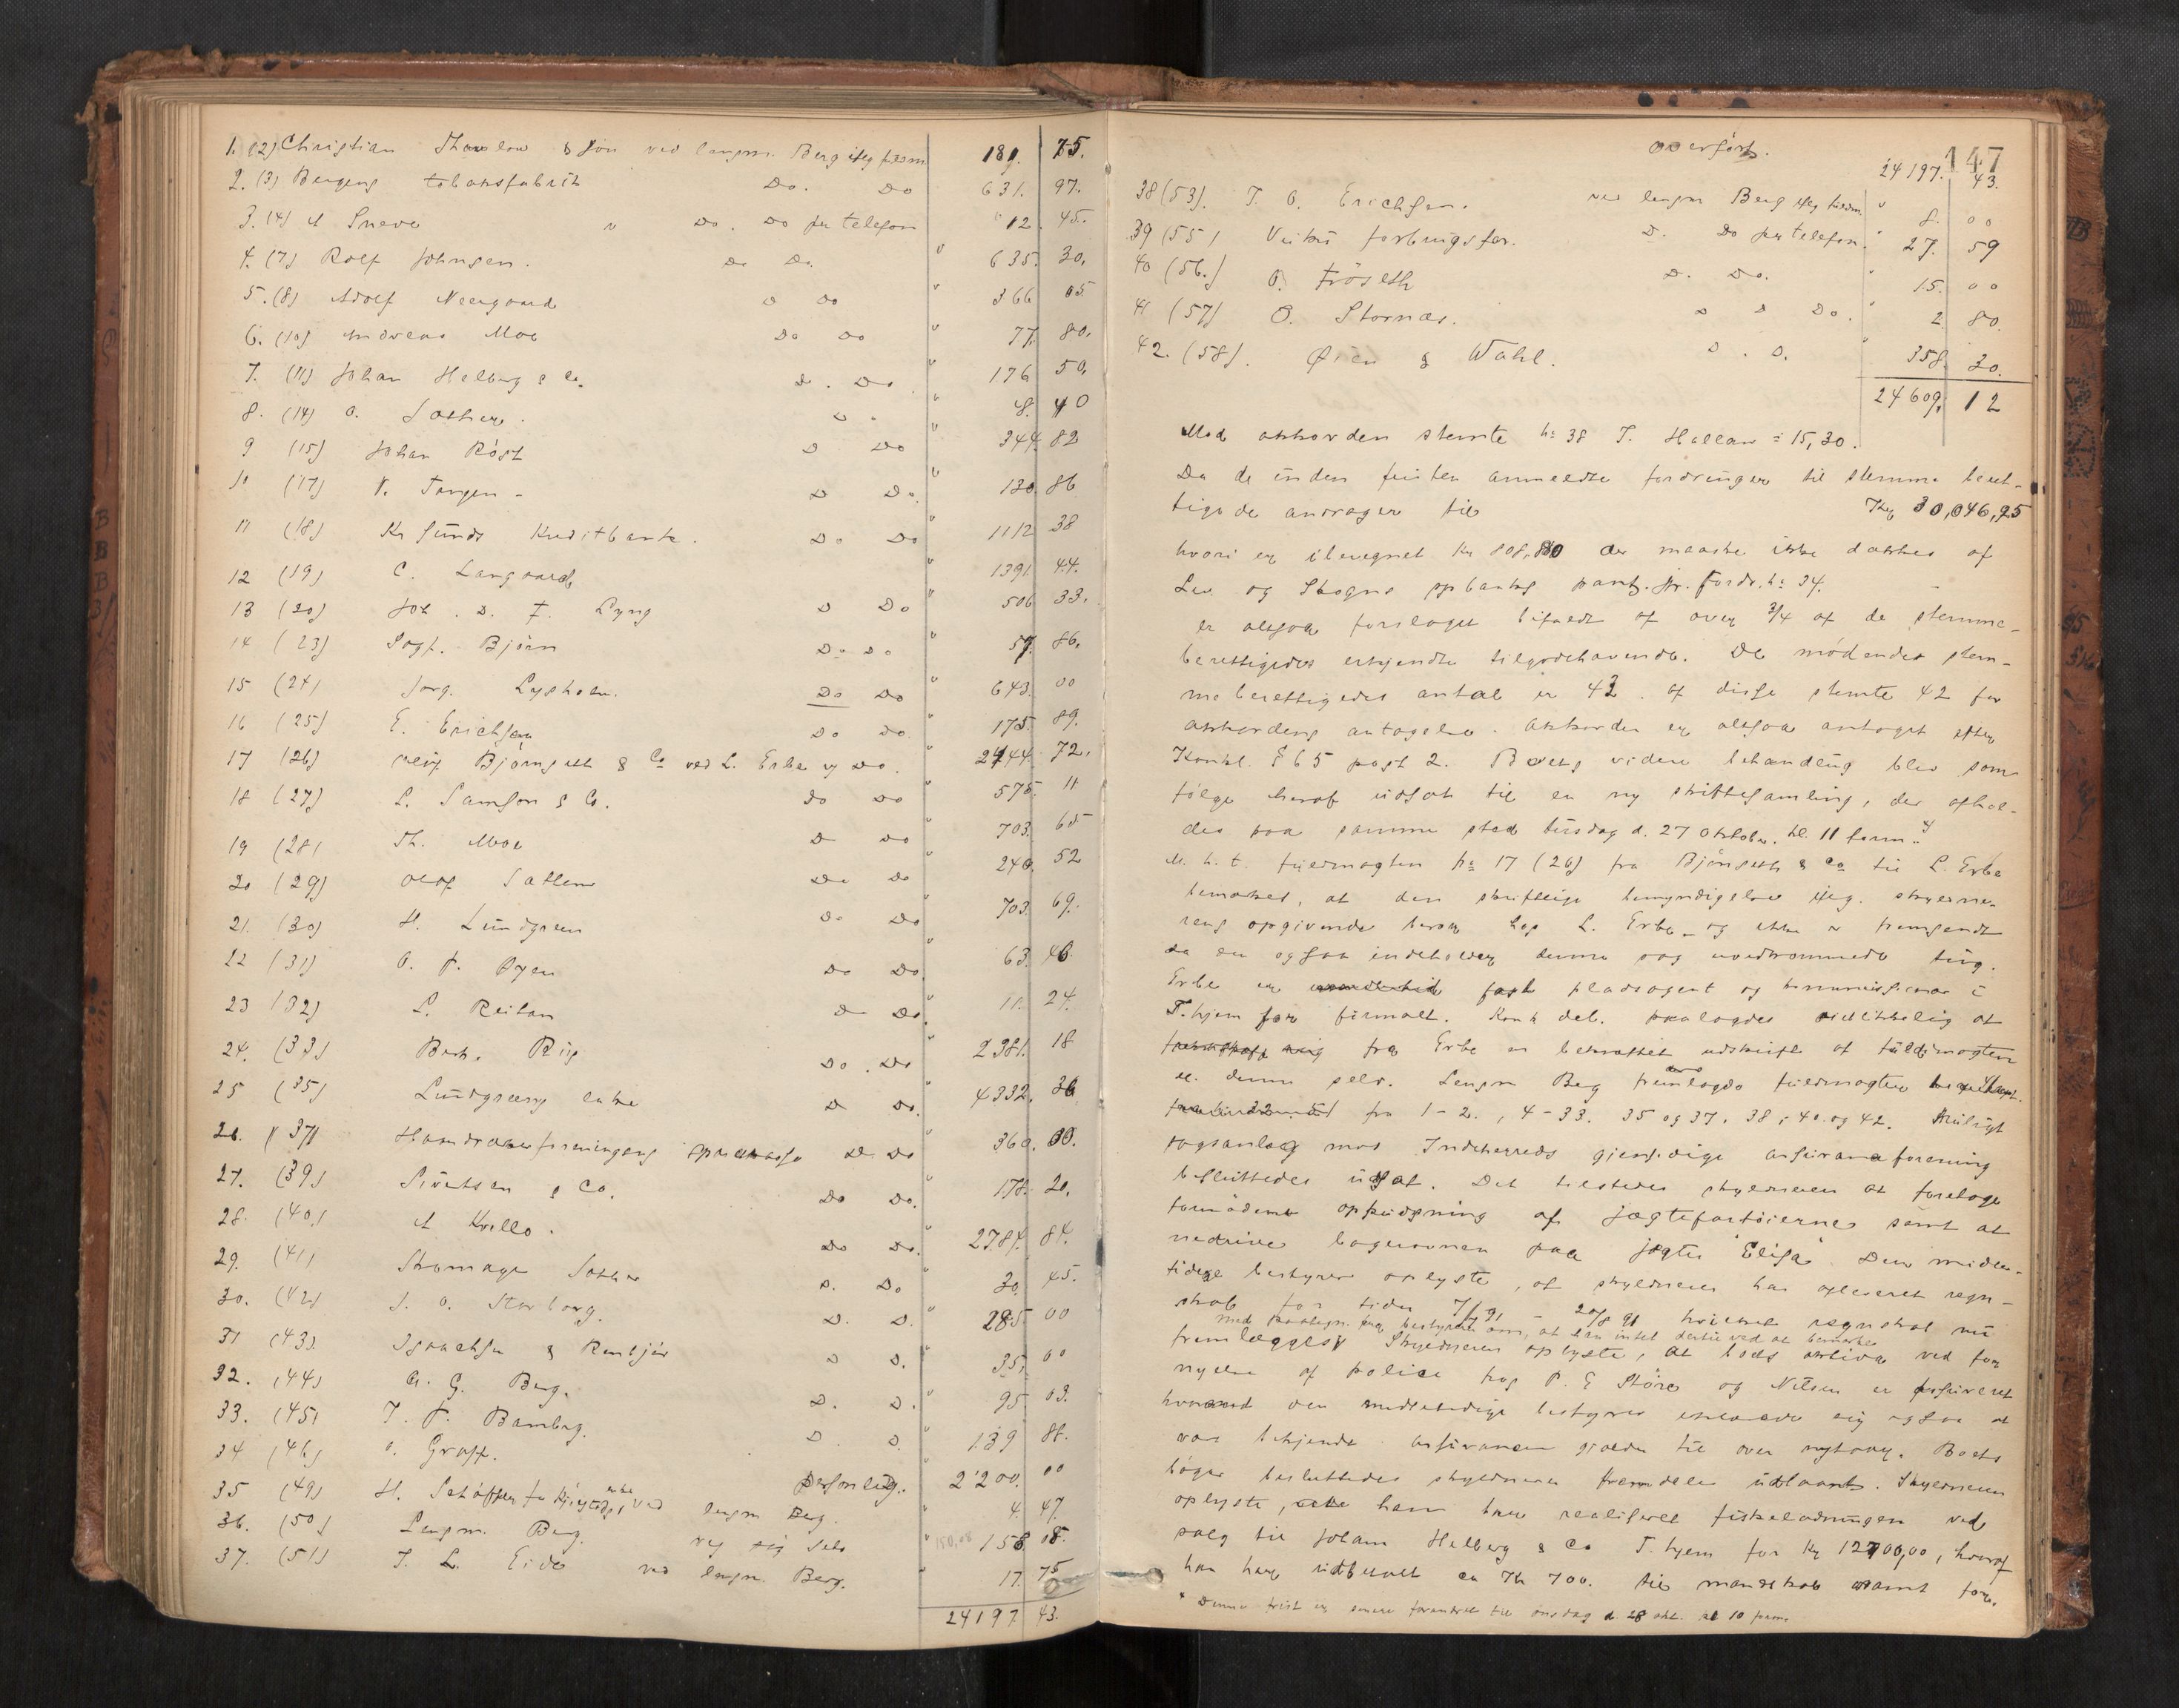 1. (2) Christian Thaulow & Søn ved lensm. Berg iflg fuldm. 189. 75.
2. (3) Bergens tobaksfabrik Do. Do 631. 97.
3. (4) A Sneve " Do. Do per telefon " 12. 45.
4. (7) Rolf Johnsen. Do Do. " 635. 30.
5. (8) Adolf Neergaard D Do " 366 05
6. (10) Andreas Moe Do Do " 77. 80.
7. (11) Johan Helberg & Co. D. Do " 176 50.
8. (14) O. Sather. D. " 8. 40
9 (15) Johan Röst D Do " 344. 82
10 (17) P. Tangen D Do. " 130. 86
11 (18) Kr sunds Kreditbank. Do Do " 1112 38
12 (19) C. Langaard " 1391. 44.
13 (20) Joh. D. F. Lyng D Do " 506 33.
14 (23) Sogt. Björn Do Do " 59. 86.
15 (24) Jörg. Lysholm. Do Do " 643. 00
16 (25) E. Erichsen Do Do. " 175. 89.
17 (26) Bjørnseth & Co ved L. Erbe og Do. " 2444. 72.
18 (27) L. Samson & Co. Do Do " 575. 11
19 (28) Th. Moe D Do " 703. 65
20 (29) Olaf Sattem Do Do " 240. 52
21. (30) H. Lundgreen Do Do " 703. 69.
22 (31) O. P. Öyen Do Do. " 63. 46.
23 (32) L. Reitan D Do. " 11. 24.
24. (33) Do. Do " 2381. 18
25 (35) Lundgreens enke D Do. 4332. 36
26. (37) Haandværkerforeningens sparekasse D. Do 360. 00.
27. (39) Sivertsen & Co. Do Do. 178. 20.
28. (40) A Krello. Do Do. " 2784. 84.
29. (41) Sather D. Do " 30. 45.
30. (42) J. O. Storborg. D. D. " 285 00
31 (43) Isachsen & Renbjør D D. " 35. 00
32. (44) A. G. Berg. D. D. " 95 03.
33. (45) J. F. Bamberg. D D. " 139 88.
34 (46) O. Graff. personlig. 2200. 00
35 (49) H. Schöffer enke, ved lensm Berg. " 4. 47.
36. (50) Lensm. Berg. ved sig selv " 158. 08.
37. (51) J. L. Eide ved lensm. Berg. " 17. 75
24197. 43.
147
overført. 24197. 43.
38 (53). J. O. Erichsen. ved lensm Berg iflg fuldm. " 8. 00
39 (55) forbrugsfor. D. Do per telefon. " 27. 59
40 (56.) O. Fröseth D. Do. " 15. 00
41 (57) O. Stornæs. D D Do. " 2. 80.
42. (58). Øien & Wahl. D. D. " 358. 30.
24609. 12
Mod akkorden stemte No 38 J. Hallan = 15,30.
Da de inden fristen anmeldte fordringer til stemme beret-
tigede andrager til Kr 30,046,95
hvori er iberegnet Kr 808,80 der maaske ikke dækkes af
Lev og Skogns spbanks pant. jfr. fordr. No 34.
er altsaa forslaget bifaldt af over 3/4 af de stemme-
berettigedes erkjendte tilgodehavende. De mødendes stem-
meberettigedes antal er 42. af disse stemte 42 for
akkordens antagelse. Akkorden er altsaa antaget efter
Konkl. § 65 post 2. Boets videre behandling blev som
følge heraf udsat til en ny skiftesamling, der afhol-
des paa samme sted tirsdag d. 27 Oktober. kl. 11 form.
M. h. t. fuldmagten No 17 (26) fra Bjönseth & Co til L. Erbe
bemærkes, at den skriftlige bemyndigelse iflg. skyldne-
rens opgivende beror hos L. Erbe og ikke er fremsendt
da den ogsaa indeholder denne sag uvedkommende ting.
Erbe er fast pladsagent og kommissionær i
T.hjem for firmaet. Konk deb. paalagdes
fra Erbe en bekræftet udskrift af fuldmagten
el. denne selv. Lensm Berg fremlagde fuldmagter
fra 1-2., 4-33. 35 og 37. 38, 40. og 42.
sagsanlæg mod Indherreds gjensidige assuranceforening
besluttedes udsat. Det tilstedes skyldneren at foretage
fornöden opfrisgning af jægtefartöiernes samt at
nedrive bagerovnen paa jægten "Elisa" Den midler-
tidige bestyrer oplyste, at skyldneren har afleveret regn-
skab for tiden 7/7 91 - 20/8 91 hvilket regnskab nu
med paategn. fra bestyreren om, at han intet dertil ved at bemærke
fremlægges. Skyldneren oplyste, at boets aktiva ved for
nyelse af police hos P. E Störe og Nilsen er assureret
den midlertidige bestyrer erklærede sig ogsaa at
være bekjendt. assurancen gjælder til over nytaar. Boets
bøger besluttedes skyldneren fremdeles udlaant. Skyldneren
oplyste, at han har realiseret fiskeladningen ved
salg til Johan Helberg & Co T.hjem for Kr 12700,00, hvoraf
han har udbetalt ca Kr 700. til mandskab samt for.
* Denne frist er senere forandret til onsdag d 28 okt. kl 10 form.